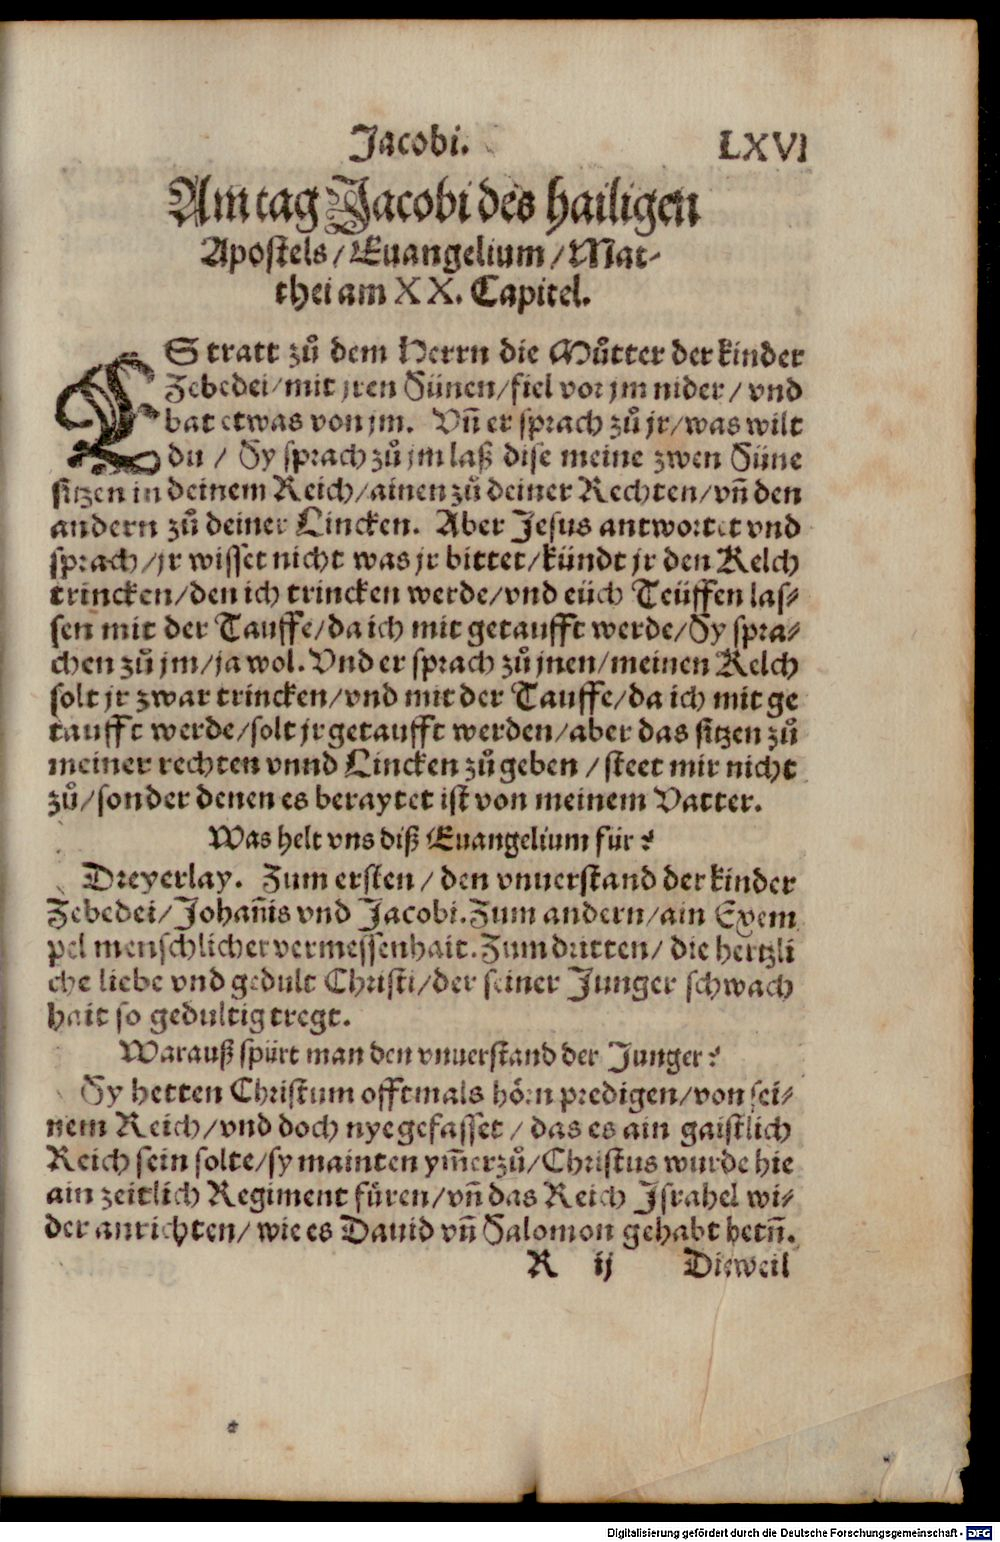 Jacobi. LXVI
Am tag Jacobi des hailigen
Apostels / Euangelium / Mat-
thei am XX. Capitel.
ES tratt zů dem Herrn die Můtter der kinder
Zebedei / mit jren Sünen / fiel vor jm nider / vnd
bat etwas von jm. Vñ er sprach zů jr / was wilt
du / Sy sprach zů jm laß dise meine zwen Süne
sitzen in deinem Reich / ainen zů deiner Rechten / vñ den
andern zů deiner Lincken. Aber Jesus antwortet vnd
sprach / jr wisset nicht was jr bittet / kündt jr den Kelch
trincken / den ich trincken werde / vnd eüch Teüffen las-
sen mit der Tauffe / da ich mit getaufft werde / Sy spra-
chen zů jm / ja wol. Vnd er sprach zů jnen / meinen Kelch
solt jr zwar trincken / vnd mit der Tauffe / da ich mit ge
taufft werde / solt jr getaufft werden / aber das sitzen zů
meiner rechten vnnd Lincken zů geben / steet mir nicht
zů / sonder denen es beraytet ist von meinem Vatter.
Was helt vns diß Euangelium für?
Dreyerlay. Zum ersten / den vnuerstand der kinder
Zebedei / Johañis vnd Jacobi. Zum andern / ain Exem
pel menschlicher vermessenhait. Zum dritten / die hertzli
che liebe vnd gedult Christi / der seiner Junger schwach
hait so gedultig tregt.
Warauß spürt man den vnuerstand der Junger?
Sy hetten Christum offtmals hörn predigen / von sei-
nem Reich / vnd doch nye gefasset / das es ain gaistlich
Reich sein solte / sy mainten ym̃erzů / Christus wurde hie
ain zeitlich Regiment füren / vñ das Reich Israhel wi-
der anrichten / wie es Dauid vñ Salomon gehabt hetñ.
R ij Dieweil
Digitalisierung gefördert durch die Deutsche Forschungsgemeinschaft - DFG